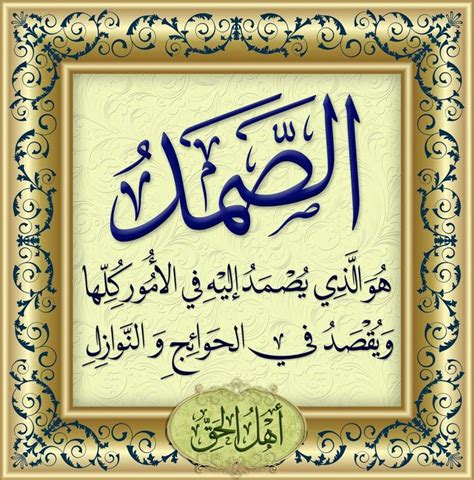 الصَّمَدُ
هُوَ الَّذِي يُصْمَدُ إِلَيْهِ فِي الأُمُورِ كُلِّهَا
وَيُقْصَدُ فِي الحَوَائِجِ وَ النَّوَازِلِ
أَهْلُ الحَقِّ